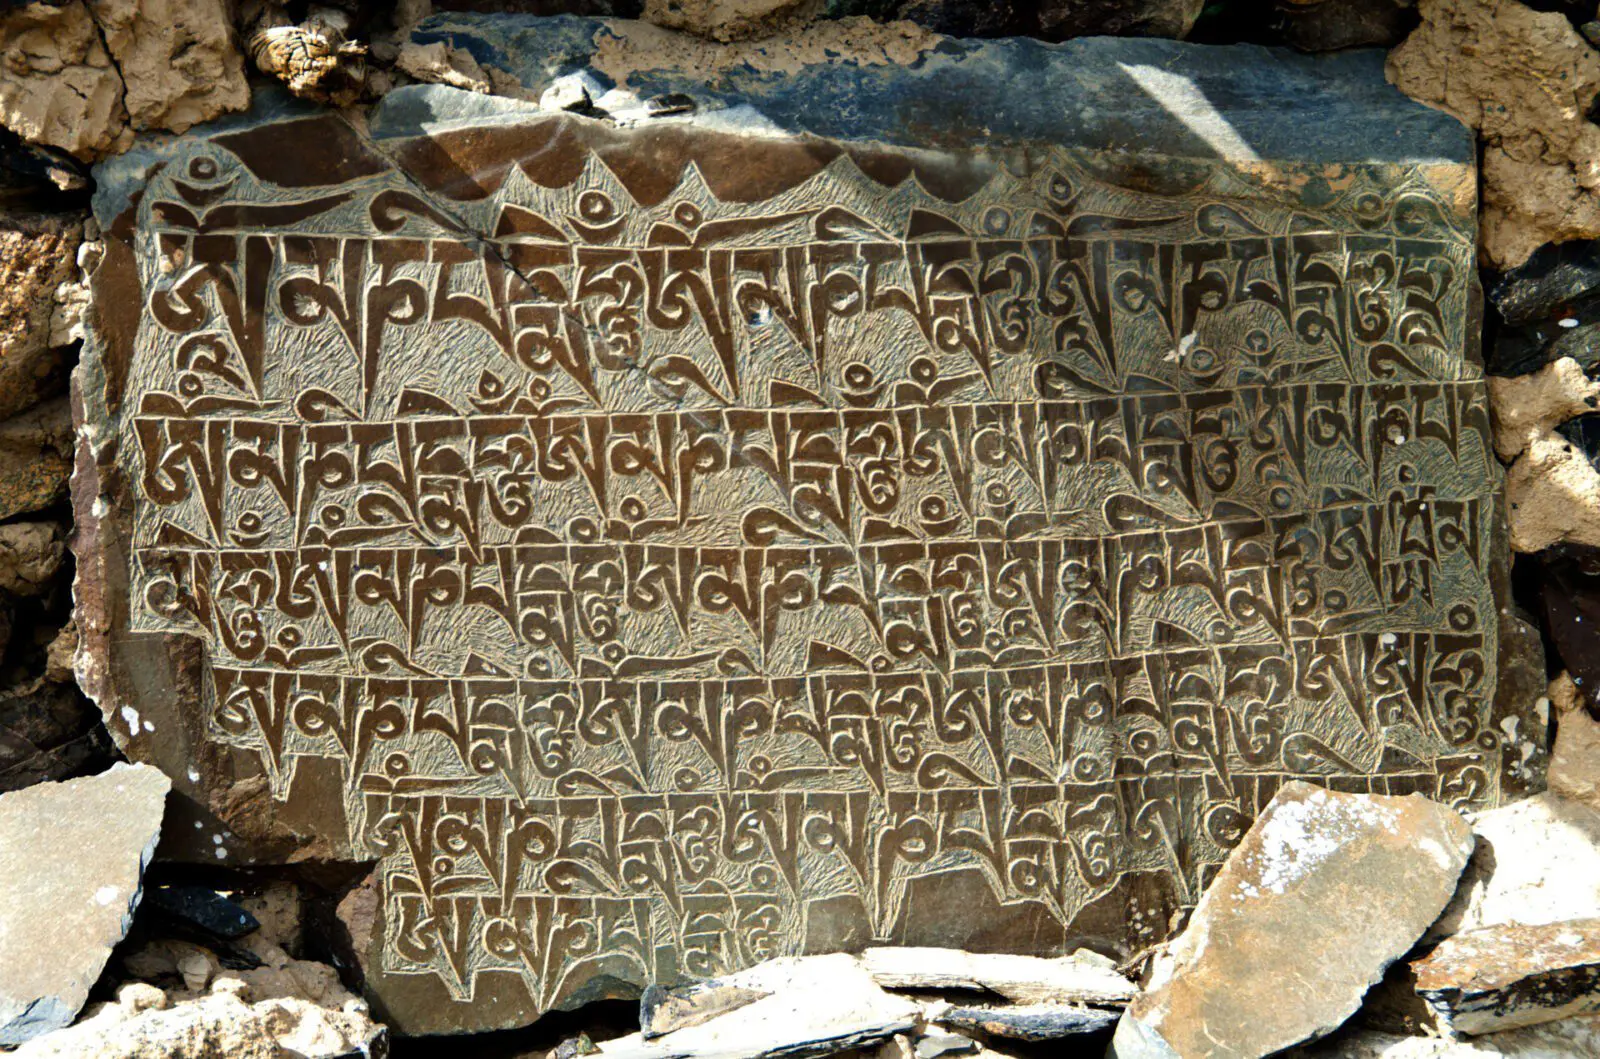 ཨོཾ་མ་ཎི་པདྨེ་ཧཱུྃ་ཨོཾ་མ་ཎི་པདྨེ་ཧཱུྃ་ཨོཾ་མ་ཎི་པདྨེ་ཧཱུྃ་ཧྲཱི
ཨོཾ་མ་ཎི་པདྨེ་ཧཱུྃ་ཨོཾ་མ་ཎི་པདྨེ་ཧཱུྃ་ཨོཾ་མ་ཎི་པདྨེ་ཧཱུྃ་ཨོཾ་མ་ཎི་པད
མེ་ཧཱུྃ་ཨོཾ་མ་ཎི་པདྨེ་ཧཱུྃ་ཨོཾ་མ་ཎི་པདྨེ་ཧཱུྃ་ཨོཾ་མ་ཎི་པདྨེ་ཧཱུྃ
ཨོཾ་མ་ཎི་པདྨེ་ཧཱུྃ་ཨོཾ་མ་ཎི་པདྨེ་ཧཱུྃ་ཨོཾ་མ་ཎི་པདྨེ་ཧཱུྃ
ཨོཾ་མ་ཎི་པདྨེ་ཧཱུྃ་ཨོཾ་མ་ཎི་པདྨེ་ཧཱུྃ
ཨོཾ་མ་ཎི་པདྨེ་ཧཱུྃ